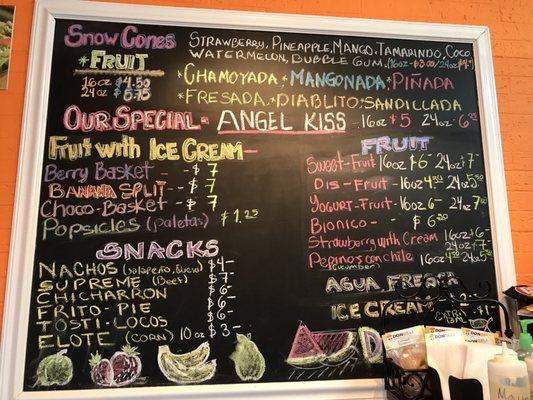 SNOW CONES
STRAWBERRY, PINEAPPLE, MANGO, TAMARINDO, COCO
WATERMELON, BUBBLE GUM.
*FRUIT
16oz $4.50
24oz $5.75
*CHAMOYADA *MANGONADA *PIÑADA
*FRESADA *DIABLITO *SANDILLADA
OUR SPECIAL - ANGEL KISS - 16oz $5 24oz $6
FRUIT WITH ICE CREAM -
BERRY BASKET - $7
BANANA SPLIT - $7
CHOCO-BASKET - $7
POPSICLES (paletas) $1.25
SNACKS
NACHOS (Jalapeño, Queso) $4-
SUPREME (Beef) $7-
CHICHARRON $6-
FRITO-PIE $6-
TOSTI-LOCOS $6-
ELOTE (CORN) 10oz $3-
FRUIT
SWEET-FRUIT 16oz $6- 24oz $7-
DIS-FRUIT - 16oz 4.50 24oz 5.50
YOGURT-FRUIT - 16oz 6- 24oz 7.00
BIONICO - $6.50
STRAWBERRY WITH CREAM 16oz $6-
24oz $7-
PEPINOS CON CHILE 16oz 4.50 24oz 5.50
(CUCUMBER)
AGUA FRESCA
ICE CREAM